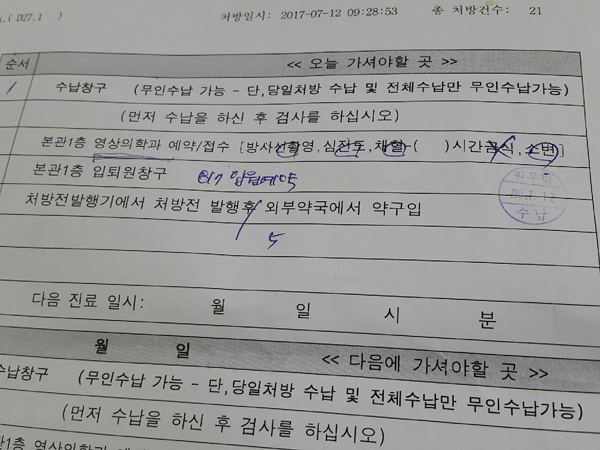 (D27.1 )
처방일시: 2017-07-12 09:28:53 총 처방건수: 21
순서 << 오늘 가셔야할 곳 >>
1 수납창구 (무인수납 가능 - 단,당일처방 수납 및 전체수납만 무인수납가능)
(먼저 수납을 하신 후 검사를 하십시오)
본관1층 영상의학과 예약/접수 [방사선촬영,심전도,채혈-( )시간금식,소변]
본관1층 입퇴원창구 입원예약
수납
처방전발행기에서 처방전 발행후 외부약국에서 약구입
다음 진료 일시: 월 일 시 분
월 일 << 다음에 가셔야할 곳 >>
수납창구 (무인수납 가능 - 단,당일처방 수납 및 전체수납만 무인수납가능)
(먼저 수납을 하신 후 검사를 하십시오)